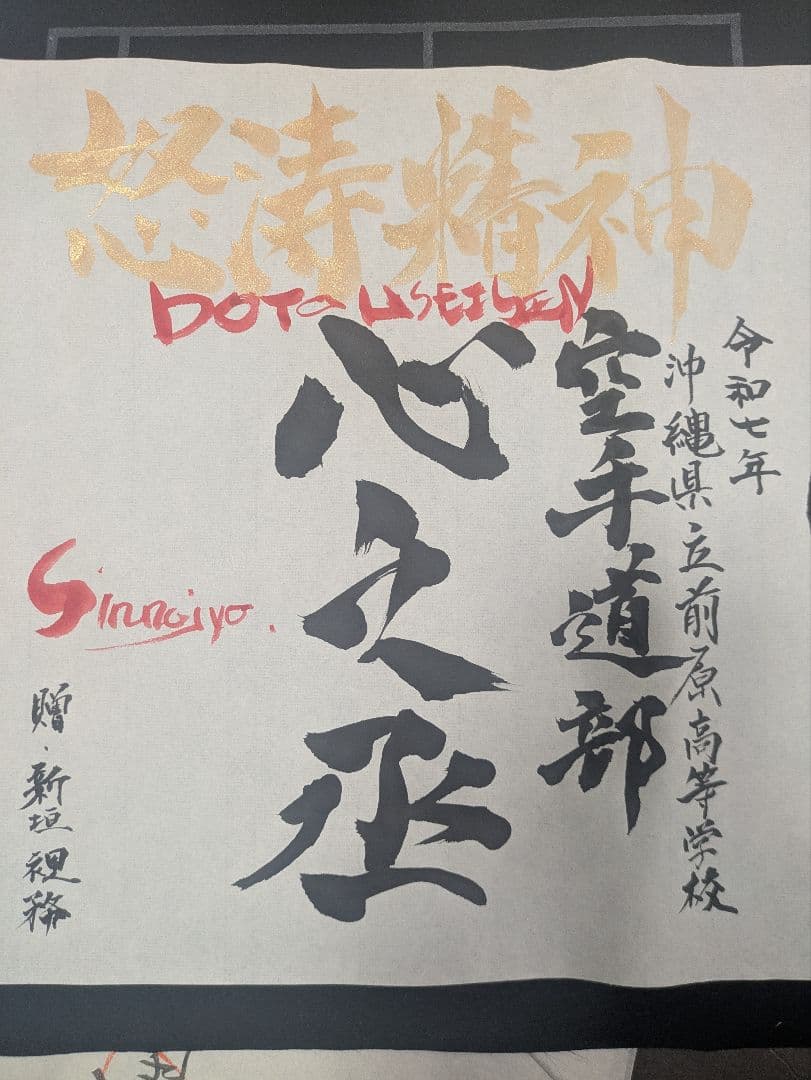 怒涛精神
DOTOUSEISEN
令和七年
沖縄県立前原高等学校
空手道部
心之丞
Sinnojyo.
贈・新垣